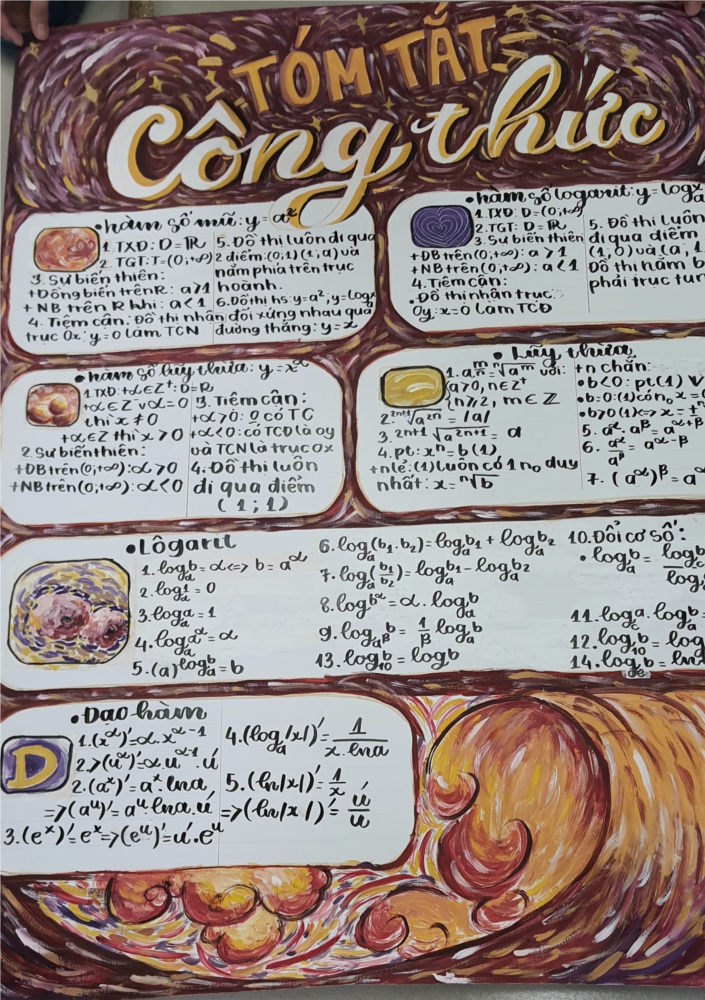 TÓM TẮT
Công thức
• hàm số mũ: y = aˣ
1. TXĐ: D = ℝ
2. TGT: T = (0;+∞)
3. Sự biến thiên:
+ Đồng biến trên ℝ: a>1
+ NB trên ℝ khi: a<1
4. Tiệm cận: Đồ thị nhận
trục Ox: y=0 làm TCN
5. Đồ thị luôn đi qua
2 điểm: (0;1) (1;a) và
nằm phía trên trục
hoành.
6. Đồ thị hs: y=aˣ, y=logₐx
đối xứng nhau qua
đường thẳng: y=x
• hàm số logarit: y = logₐx
1. TXĐ: D = (0;+∞)
2. TGT: D = ℝ
3. Sự biến thiên
+ ĐB trên (0;+∞): a>1
+ NB trên (0;+∞): a<1
4. Tiệm cận:
• Đồ thị nhận trục
Oy: x=0 làm TCĐ
5. Đồ thị luôn
đi qua điểm
(1;0) và (a;1
Đồ thị nằm b
phải trục tun
• hàm số lũy thừa: y = x^α
1. TXĐ: +α∈Z⁺: D=ℝ
+α∈Z⁻ ∨ α=0
thì x≠0
+α∈Z thì x>0
2. Sự biến thiên:
+ĐB trên (0;+∞): α>0
+NB trên (0;+∞): α<0
3. Tiệm cận:
+α>0: 0 có TC
+α<0: có TCĐ là oy
và TCN là trục Ox
4. Đồ thị luôn
đi qua điểm
(1;1)
• Lũy thừa
1. a^(m/n) = ⁿ√a^m với:
{a>0, n∈Z⁺
{n≥2, m∈Z
2. ²ⁿ⁺¹√a²ⁿ = /a/
3. ²ⁿ⁺¹√a²ⁿ⁺¹ = a
4. pt: xⁿ = b (1)
+n lẻ: (1) luôn có 1 n₀ duy
nhất: x = ⁿ√b
+n chẵn:
• b<0: pt(1) V
• b=0: (1) có n₀ x =
• b>0 (1)<=> x = ±
5. a^α . a^β = a^(α+β)
6. a^α/a^β = a^(α-β)
7. (a^α)^β = a^α
• Lôgarit
1. logₐb = α <=> b = a^α
2. logₐ1 = 0
3. logₐa = 1
4. logₐa^α = α
5. (a)^(logₐb) = b
6. logₐ(b₁.b₂) = logₐb₁ + logₐb₂
7. logₐ(b₁/b₂) = logₐb₁ - logₐb₂
8. log b^α = α.logₐb
9. log_(a^β) b = 1/β logₐb
13. log₁₀b = log b
10. Đổi cơ số:
• logₐb = log_c b/log
11. log_c a . logₐb =
12. log₁₀b = log
14. log_e b = ln
• Đạo hàm
D
1. (x^α)' = α.x^(α-1)
2. => (u^α)' = α u^(α-1).u'
2. (aˣ)' = aˣ.lna
=> (aᵘ)' = aᵘ lna.u'
3. (eˣ)' = eˣ => (eᵘ)' = u'.eᵘ
4. (logₐ/x/)' = 1/(x.lna)
5. (ln/x/)' = 1/x
=> (ln/x/)' = u'/u